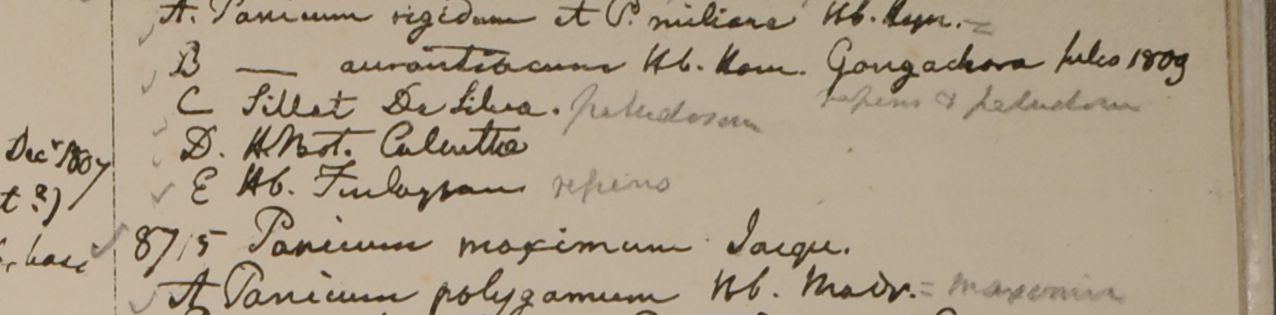 A. Panicum rigidum et P. miliare Hb. =
B — aurantiacum Hb. Ham. Gongachora Julio 1809
repens & paludosum
C Sillet De Silva. paludosum
D. H. Bot. Calcutta
E Hb. Finlayson repens
Decr 1807
t ?)
8715 Panicum maximum Jacqu.
A Panicum polygamum Hb. Madr. = maximum